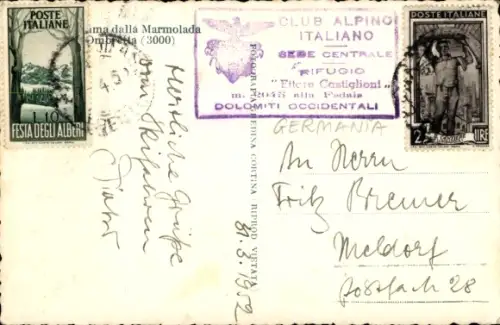 ima dalla Marmolada
Ombretta (3000)
POSTE
ITALIANE
L.10
FESTA DEGLI ALBERI
CLUB ALPINO
ITALIANO
SEDE CENTRALE
RIFUGIO
"Ettore Castiglioni"
alla Fedaia
DOLOMITI OCCIDENTALI
POSTE ITALIANE
LIRE
GERMANIA
Herzliche Grüße
vom Skifahren
CORTINA RIPROD. VIETATA
31.3.1952
An Herrn
Fritz Bremer
Meldorf
Postfach 28